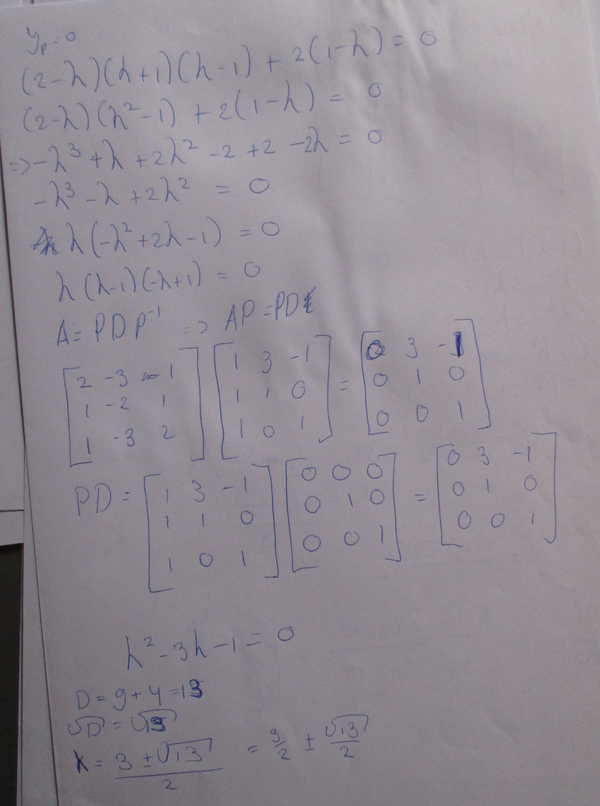 y_p = 0
(2-λ)(λ+1)(λ-1) + 2(1-λ) = 0
(2-λ)(λ²-1) + 2(1-λ) = 0
=> -λ³ + λ + 2λ² - 2 + 2 - 2λ = 0
-λ³ - λ + 2λ² = 0
λ(-λ² + 2λ - 1) = 0
λ(λ-1)(-λ+1) = 0
A = PDP⁻¹ => AP = PD
[2 -3 1; 1 -2 1; 1 -3 2] [1 3 -1; 1 1 0; 1 0 1] = [0 3 -1; 0 1 0; 0 0 1]
PD = [1 3 -1; 1 1 0; 1 0 1] [0 0 0; 0 1 0; 0 0 1] = [0 3 -1; 0 1 0; 0 0 1]
λ² - 3λ - 1 = 0
D = 9 + 4 = 13
√D = √13
λ = (3 ± √13)/2 = 3/2 ± √13/2